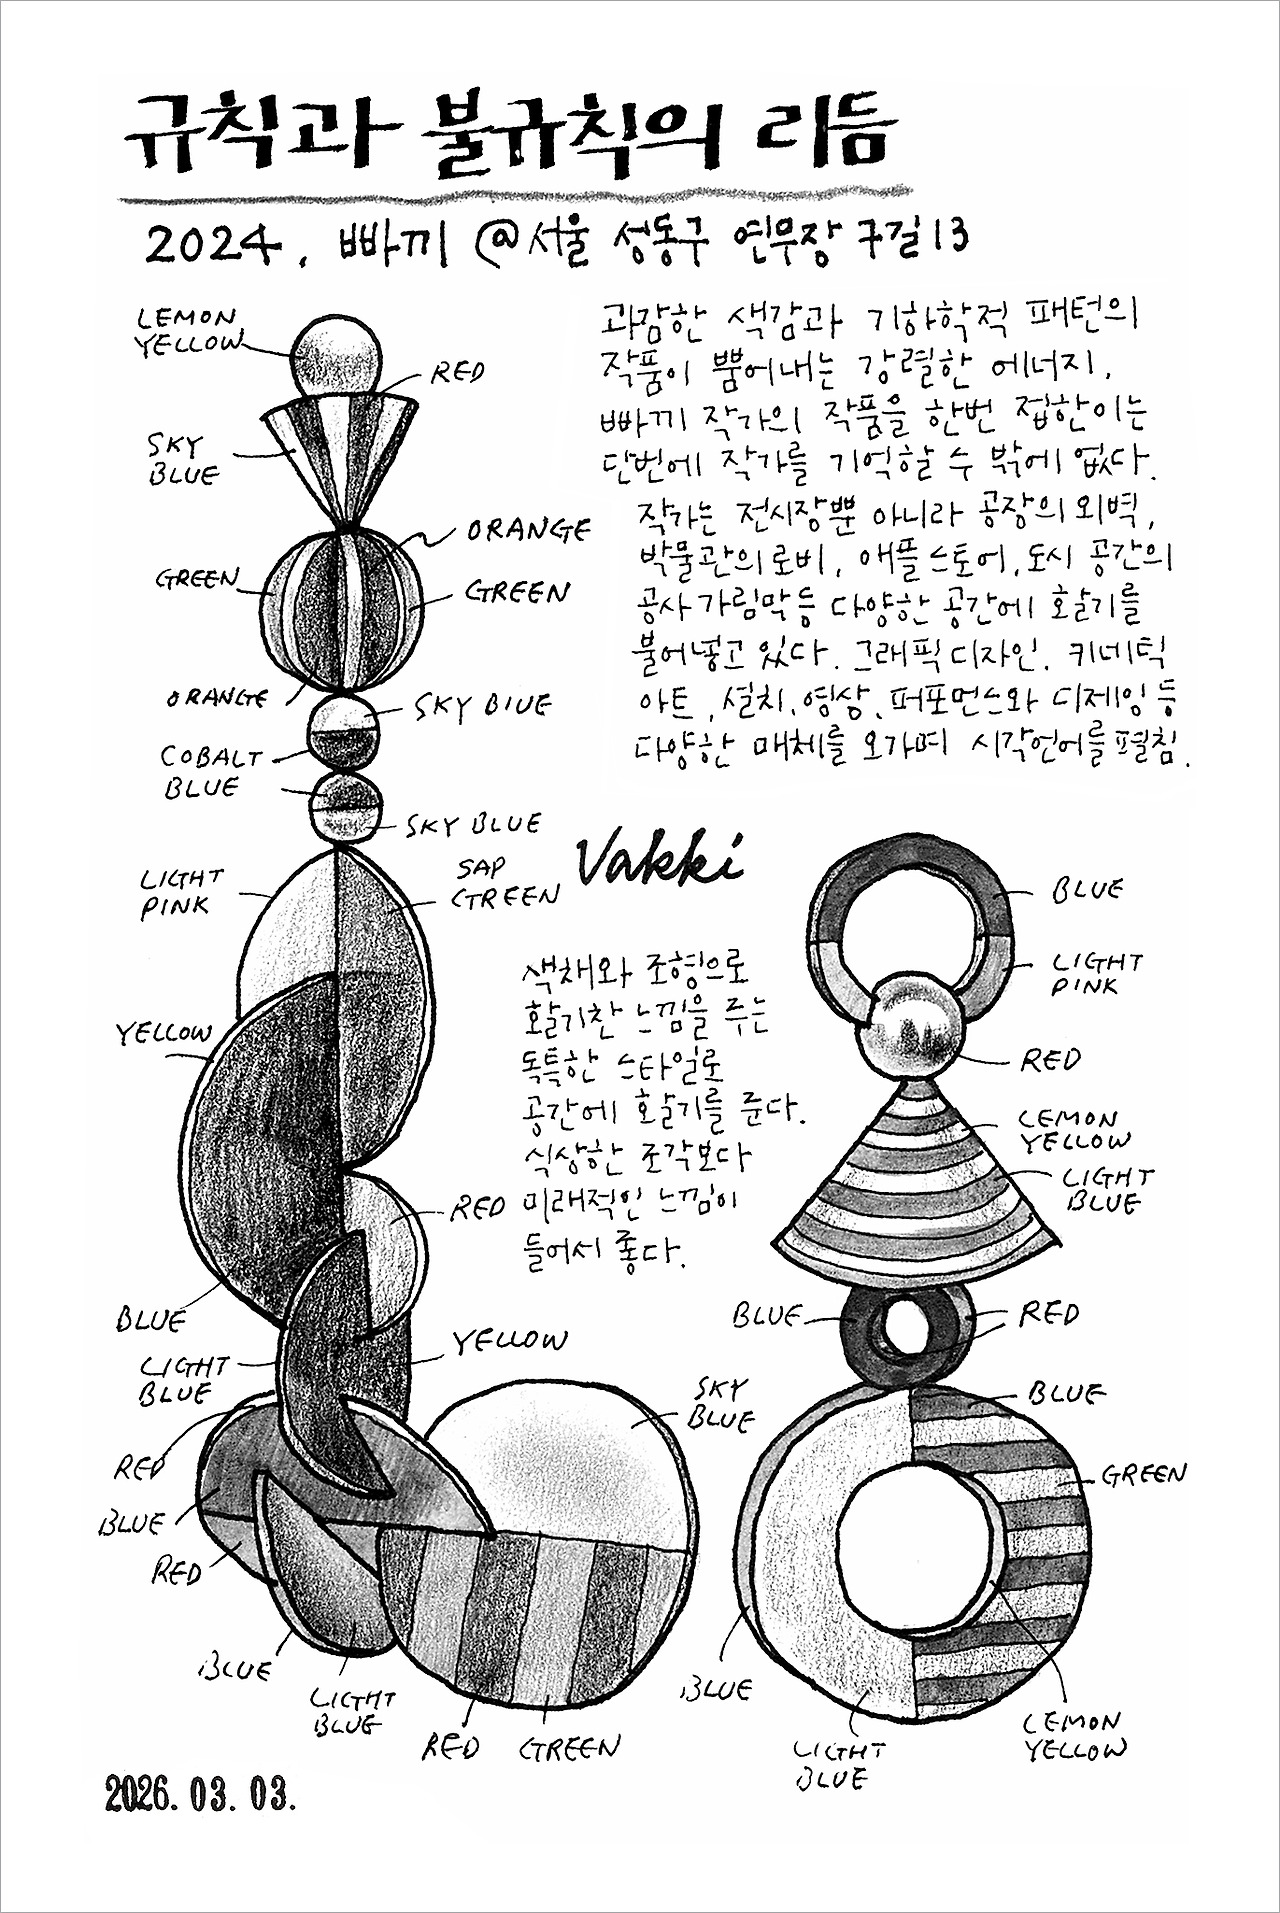 규칙과 불규칙의 리듬
2024, 빠끼 @서울 성동구 연무장 7길 13
과감한 색감과 기하학적 패턴의
작품이 뿜어내는 강렬한 에너지,
빠끼 작가의 작품을 한번 접한이는
단번에 작가를 기억할 수 밖에 없다.
작가는 전시장뿐 아니라 공장의 외벽,
박물관의 로비, 애플스토어, 도시 공간의
공사 가림막 등 다양한 공간에 활기를
불어넣고 있다. 그래픽 디자인, 키네틱
아트, 설치, 영상, 퍼포먼스와 디제잉 등
다양한 매체를 오가며 시각언어를 펼침.
LEMON
YELLOW
RED
SKY
BLUE
ORANGE
GREEN
GREEN
ORANGE
SKY BLUE
COBALT
BLUE
SKY BLUE
LIGHT
PINK
SAP
GREEN
YELLOW
RED
BLUE
LIGHT
BLUE
YELLOW
SKY
BLUE
RED
BLUE
RED
BLUE
LIGHT
BLUE
RED
GREEN
Vakki
색채와 조형으로
활기찬 느낌을 주는
독특한 스타일로
공간에 활기를 준다.
식상한 조각보다
미래적인 느낌이
들어서 좋다.
BLUE
LIGHT
PINK
RED
LEMON
YELLOW
LIGHT
BLUE
BLUE
RED
BLUE
GREEN
BLUE
LIGHT
BLUE
LEMON
YELLOW
2026. 03. 03.